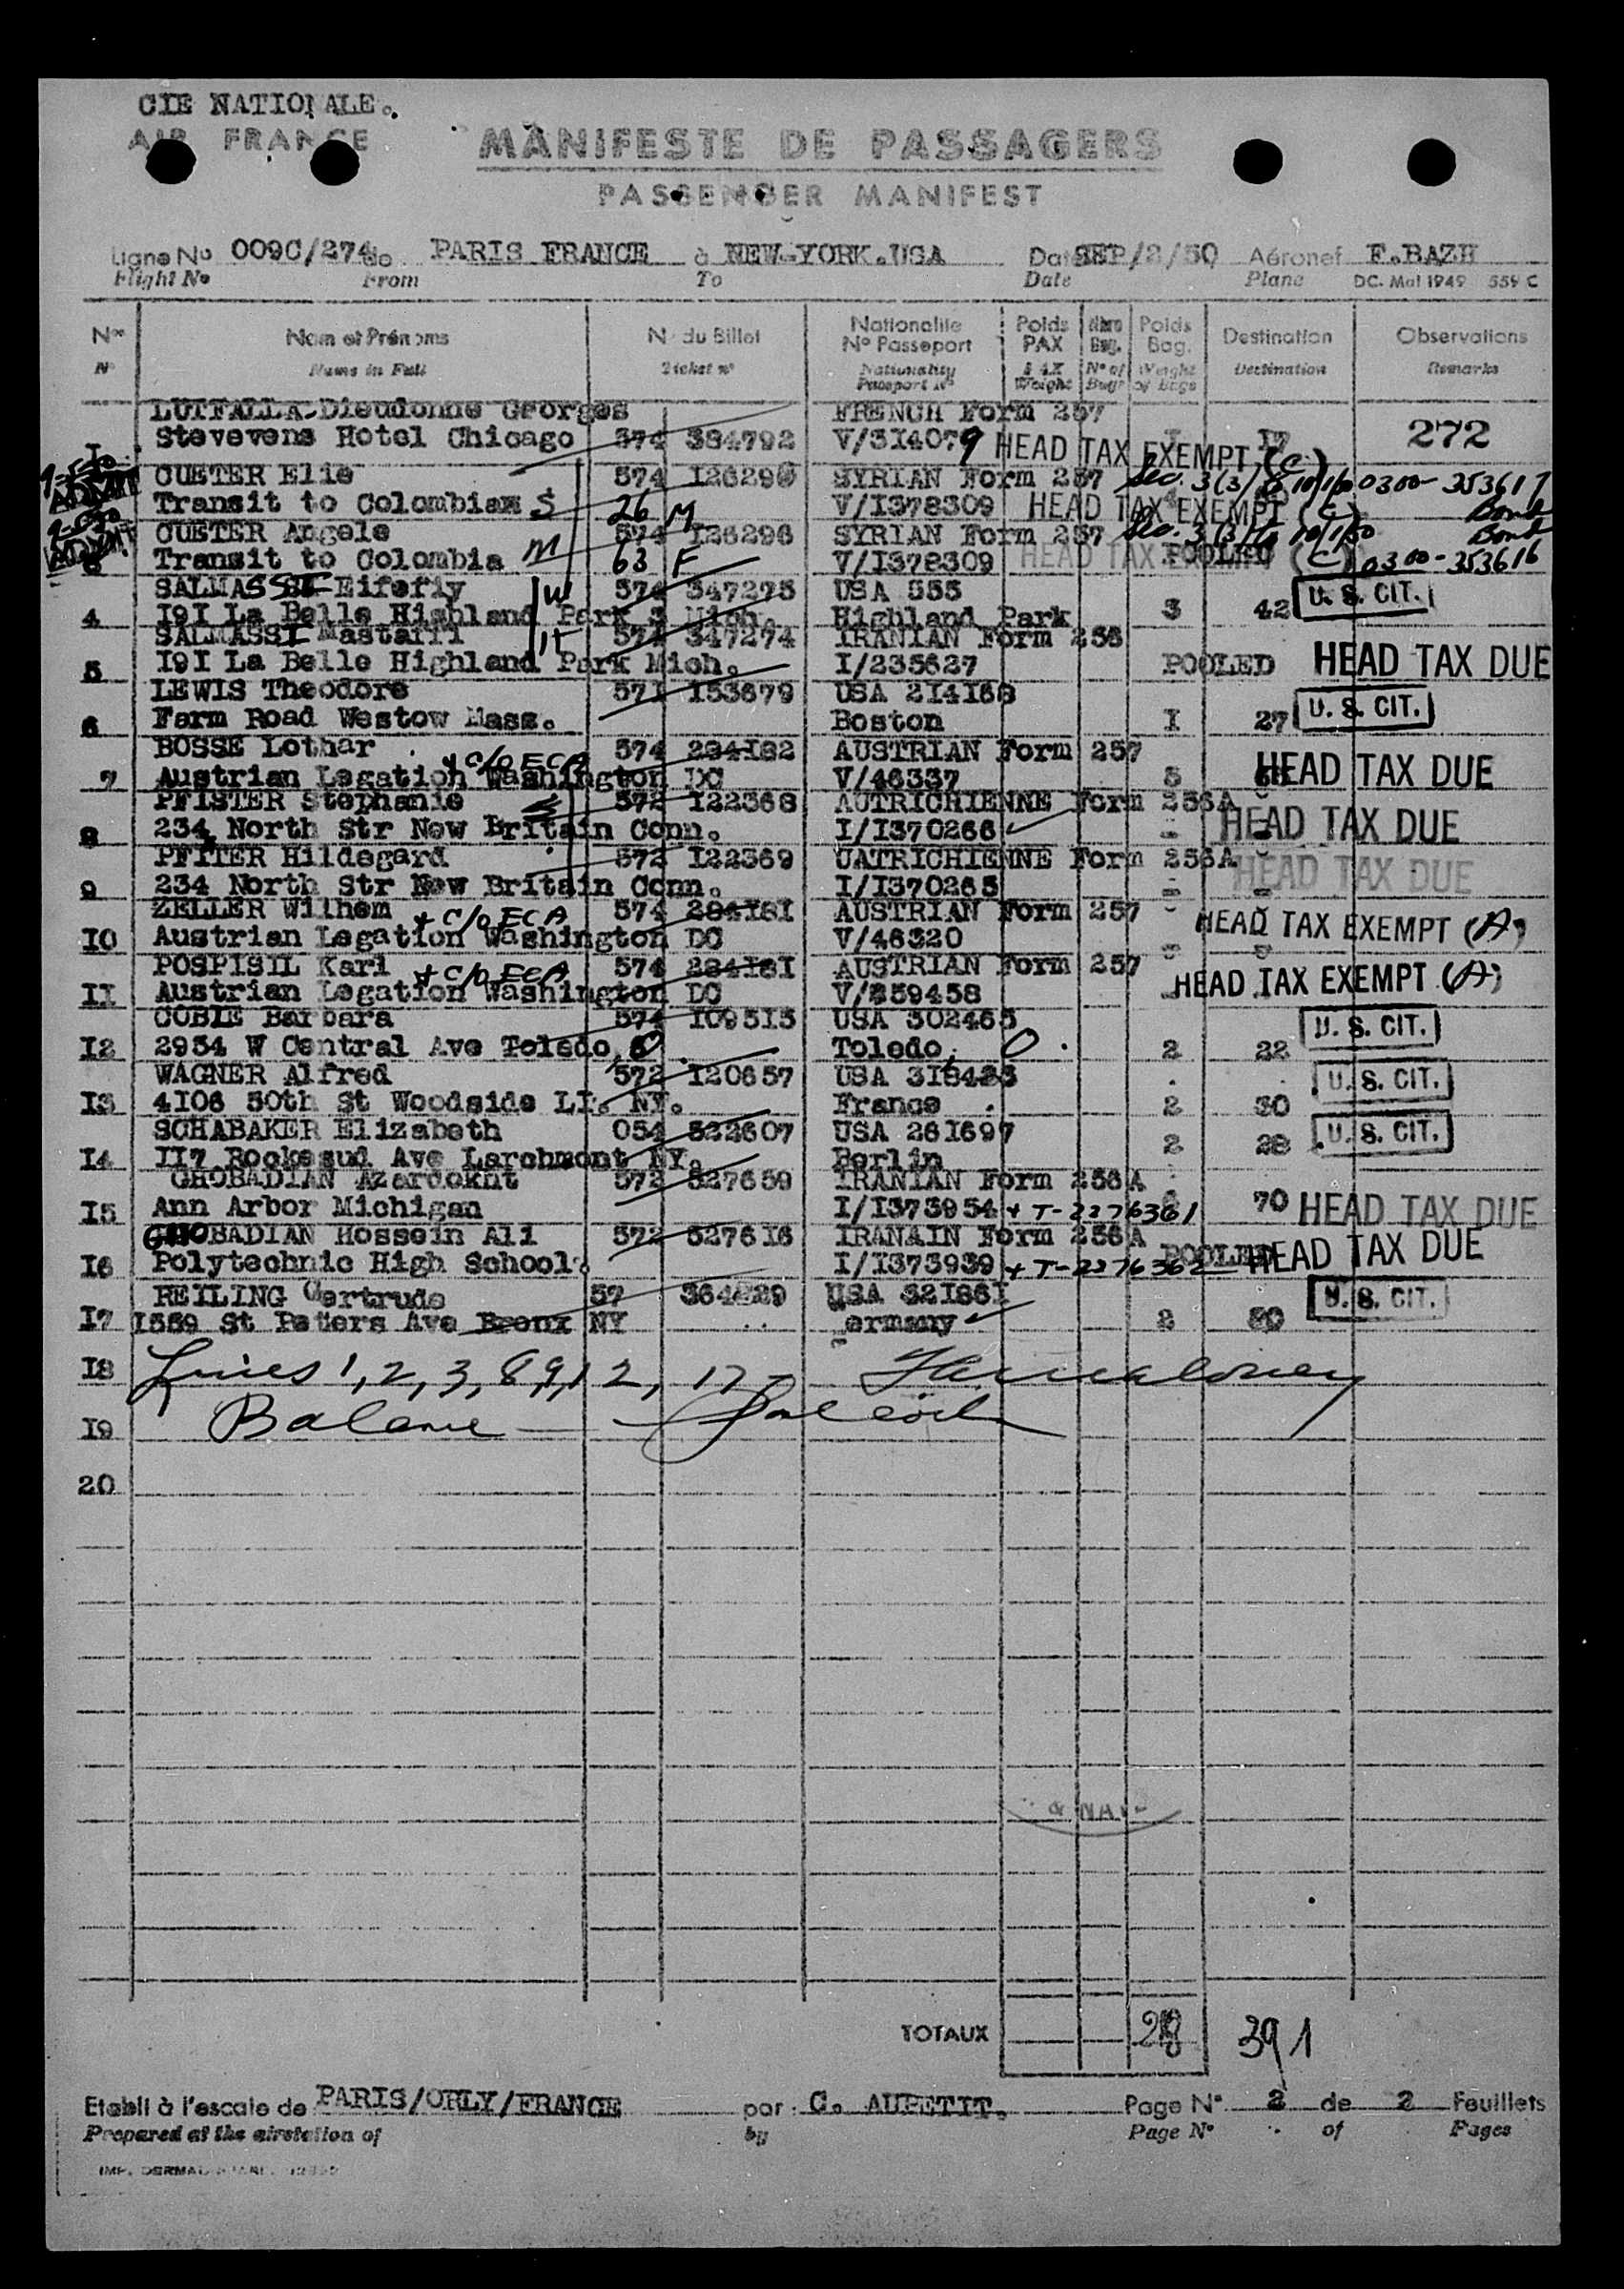 CIE NATIONALE.
AIR FRANCE
MANIFESTE DE PASSAGERS
PASSENGER MANIFEST
Ligne No 009C/274 de PARIS FRANCE à NEW-YORK.USA Date SEP/2/50 Aéronef F.BAZH
Flight No From To Date Plane DC. Mai 1949 559 C
Nos Nom et Prénoms N° du Billet Nationalite N° Passeport Poids PAX Nbre Bag. Poids Bag. Destination Observations
N° Name in Full Ticket n° Nationality Passport N° PAX Weight N° of Bags Weight of Bags Destination Remarks
LUTFALLA-Dieudonne Georges FRENCH Form 257
I Stevevens Hotel Chicago 574 384792 V/314079 HEAD TAX EXEMPT (C) 17 272
ADMIT CUETER Elie 574 126295 SYRIAN Form 257 Sec. 3(3) to 10/1/50 0300-353617
Transit to Colombia S 26 M V/1378309 HEAD TAX EXEMPT (C) Bond
ADMIT CUETER Angele 574 126296 SYRIAN Form 257 Sec. 3(3) to 10/1/50 Bond
3 Transit to Colombia M 63 F V/1378309 HEAD TAX POOLED (C) 0300-353616
SALMASSI Eifefly 574 347275 USA 555
4 191 La Belle Highland Park 3 Mich. Highland Park 3 42 U. S. CIT.
SALMASSI Mastaffi 574 347274 IRANIAN Form 256
5 191 La Belle Highland Park Mich. I/235627 POOLED HEAD TAX DUE
LEWIS Theodore 571 153679 USA 214168
6 Farm Road Westow Mass. Boston I 27 U. S. CIT.
BOSSE Lothar + c/o ECA 574 284182 AUSTRIAN Form 257
7 Austrian Legation Washington DC V/46337 5 HEAD TAX DUE
PFISTER Stephanie 572 122368 AUTRICHIENNE Form 256A
8 234 North Str New Britain Conn. I/I370266 HEAD TAX DUE
PFITER Hildegard 572 122369 UATRICHIENNE Form 256A
9 234 North Str New Britain Conn. I/I370265 HEAD TAX DUE
ZELLER Wilhem + c/o ECA 574 284181 AUSTRIAN Form 257
IO Austrian Legation Washington DC V/46320 HEAD TAX EXEMPT (A)
POSPISIL Karl + c/o ECA 574 284181 AUSTRIAN Form 257
II Austrian Legation Washington DC V/359458 HEAD TAX EXEMPT (A)
COBLE Barbara 574 109515 USA 302465
I2 2954 W Central Ave Toledo, O. Toledo, O. 2 22 U. S. CIT.
WAGNER Alfred 572 120657 USA 318423
I3 4106 50th St Woodside LI. NY. France 2 30 U. S. CIT.
SCHABAKER Elizabeth 054 522607 USA 261697
I4 II7 Rockesud Ave Larchmont NY. Berlin 2 28 U. S. CIT.
GHOBADIAN Azardokht 572 527659 IRANIAN Form 256A
I5 Ann Arbor Michigan I/I373954 + T-2276361 70 HEAD TAX DUE
GHOBADIAN Hossein Ali 572 527616 IRANAIN Form 256A
I6 Polytechnic High School. I/I373939 + T-2276362 POOLED HEAD TAX DUE
REILING Gertrude 57 364229 USA 321861
I7 1559 St Peters Ave Bronx NY ermany 2 50 U. S. CIT.
I8 Lines 1, 2, 3, 8, 9, 12, 17
I9 Balance
20
TOTAUX 28 391
Etabli à l'escale de PARIS/ORLY/FRANCE par C. AUPETIT. Page N° 2 de 2 Feuillets
Prepared at the airstation of by Page N° of Pages